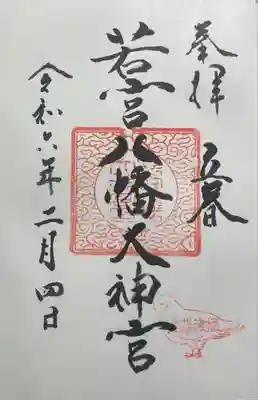 奉拝
立春
八幡大神宮
令和六年二月四日